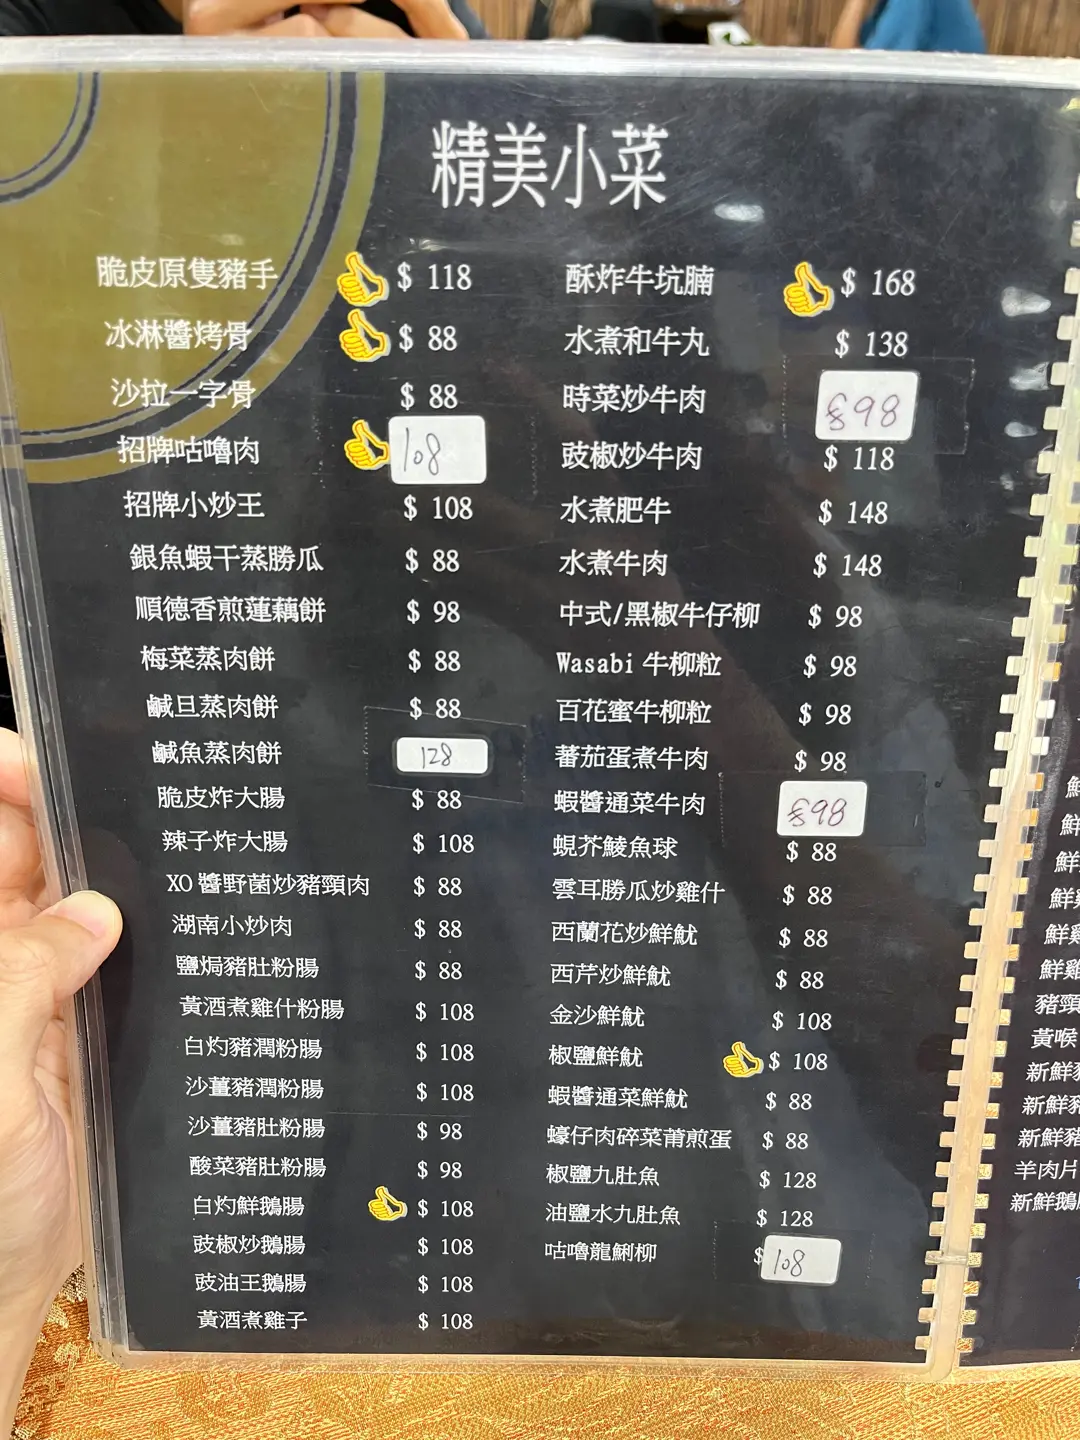 精美小菜
脆皮原隻豬手 $ 118
冰淋醬烤骨 $ 88
沙拉一字骨 $ 88
招牌咕嚕肉 108
招牌小炒王 $ 108
銀魚蝦干蒸勝瓜 $ 88
順德香煎蓮藕餅 $ 98
梅菜蒸肉餅 $ 88
鹹旦蒸肉餅 $ 88
鹹魚蒸肉餅 128
脆皮炸大腸 $ 88
辣子炸大腸 $ 108
XO 醬野菌炒豬頸肉 $ 88
湖南小炒肉 $ 88
鹽焗豬肚粉腸 $ 88
黃酒煮雞什粉腸 $ 108
白灼豬潤粉腸 $ 108
沙薑豬潤粉腸 $ 108
沙薑豬肚粉腸 $ 98
酸菜豬肚粉腸 $ 98
白灼鮮鵝腸 $ 108
豉椒炒鵝腸 $ 108
豉油王鵝腸 $ 108
黃酒煮雞子 $ 108
酥炸牛坑腩 $ 168
水煮和牛丸 $ 138
時菜炒牛肉 $98
豉椒炒牛肉 $ 118
水煮肥牛 $ 148
水煮牛肉 $ 148
中式/黑椒牛仔柳 $ 98
Wasabi 牛柳粒 $ 98
百花蜜牛柳粒 $ 98
蕃茄蛋煮牛肉 $ 98
蝦醬通菜牛肉 $98
蜆芥鯪魚球 $ 88
雲耳勝瓜炒雞什 $ 88
西蘭花炒鮮魷 $ 88
西芹炒鮮魷 $ 88
金沙鮮魷 $ 108
椒鹽鮮魷 $ 108
蝦醬通菜鮮魷 $ 88
蠔仔肉碎菜莆煎蛋 $ 88
椒鹽九肚魚 $ 128
油鹽水九肚魚 $ 128
咕嚕龍脷柳 $ 108
鮮
鮮
鮮
鮮
鮮雞
鮮雞
豬頸
黃喉
新鮮豬
新鮮豬
新鮮豬
羊肉片
新鮮鵝